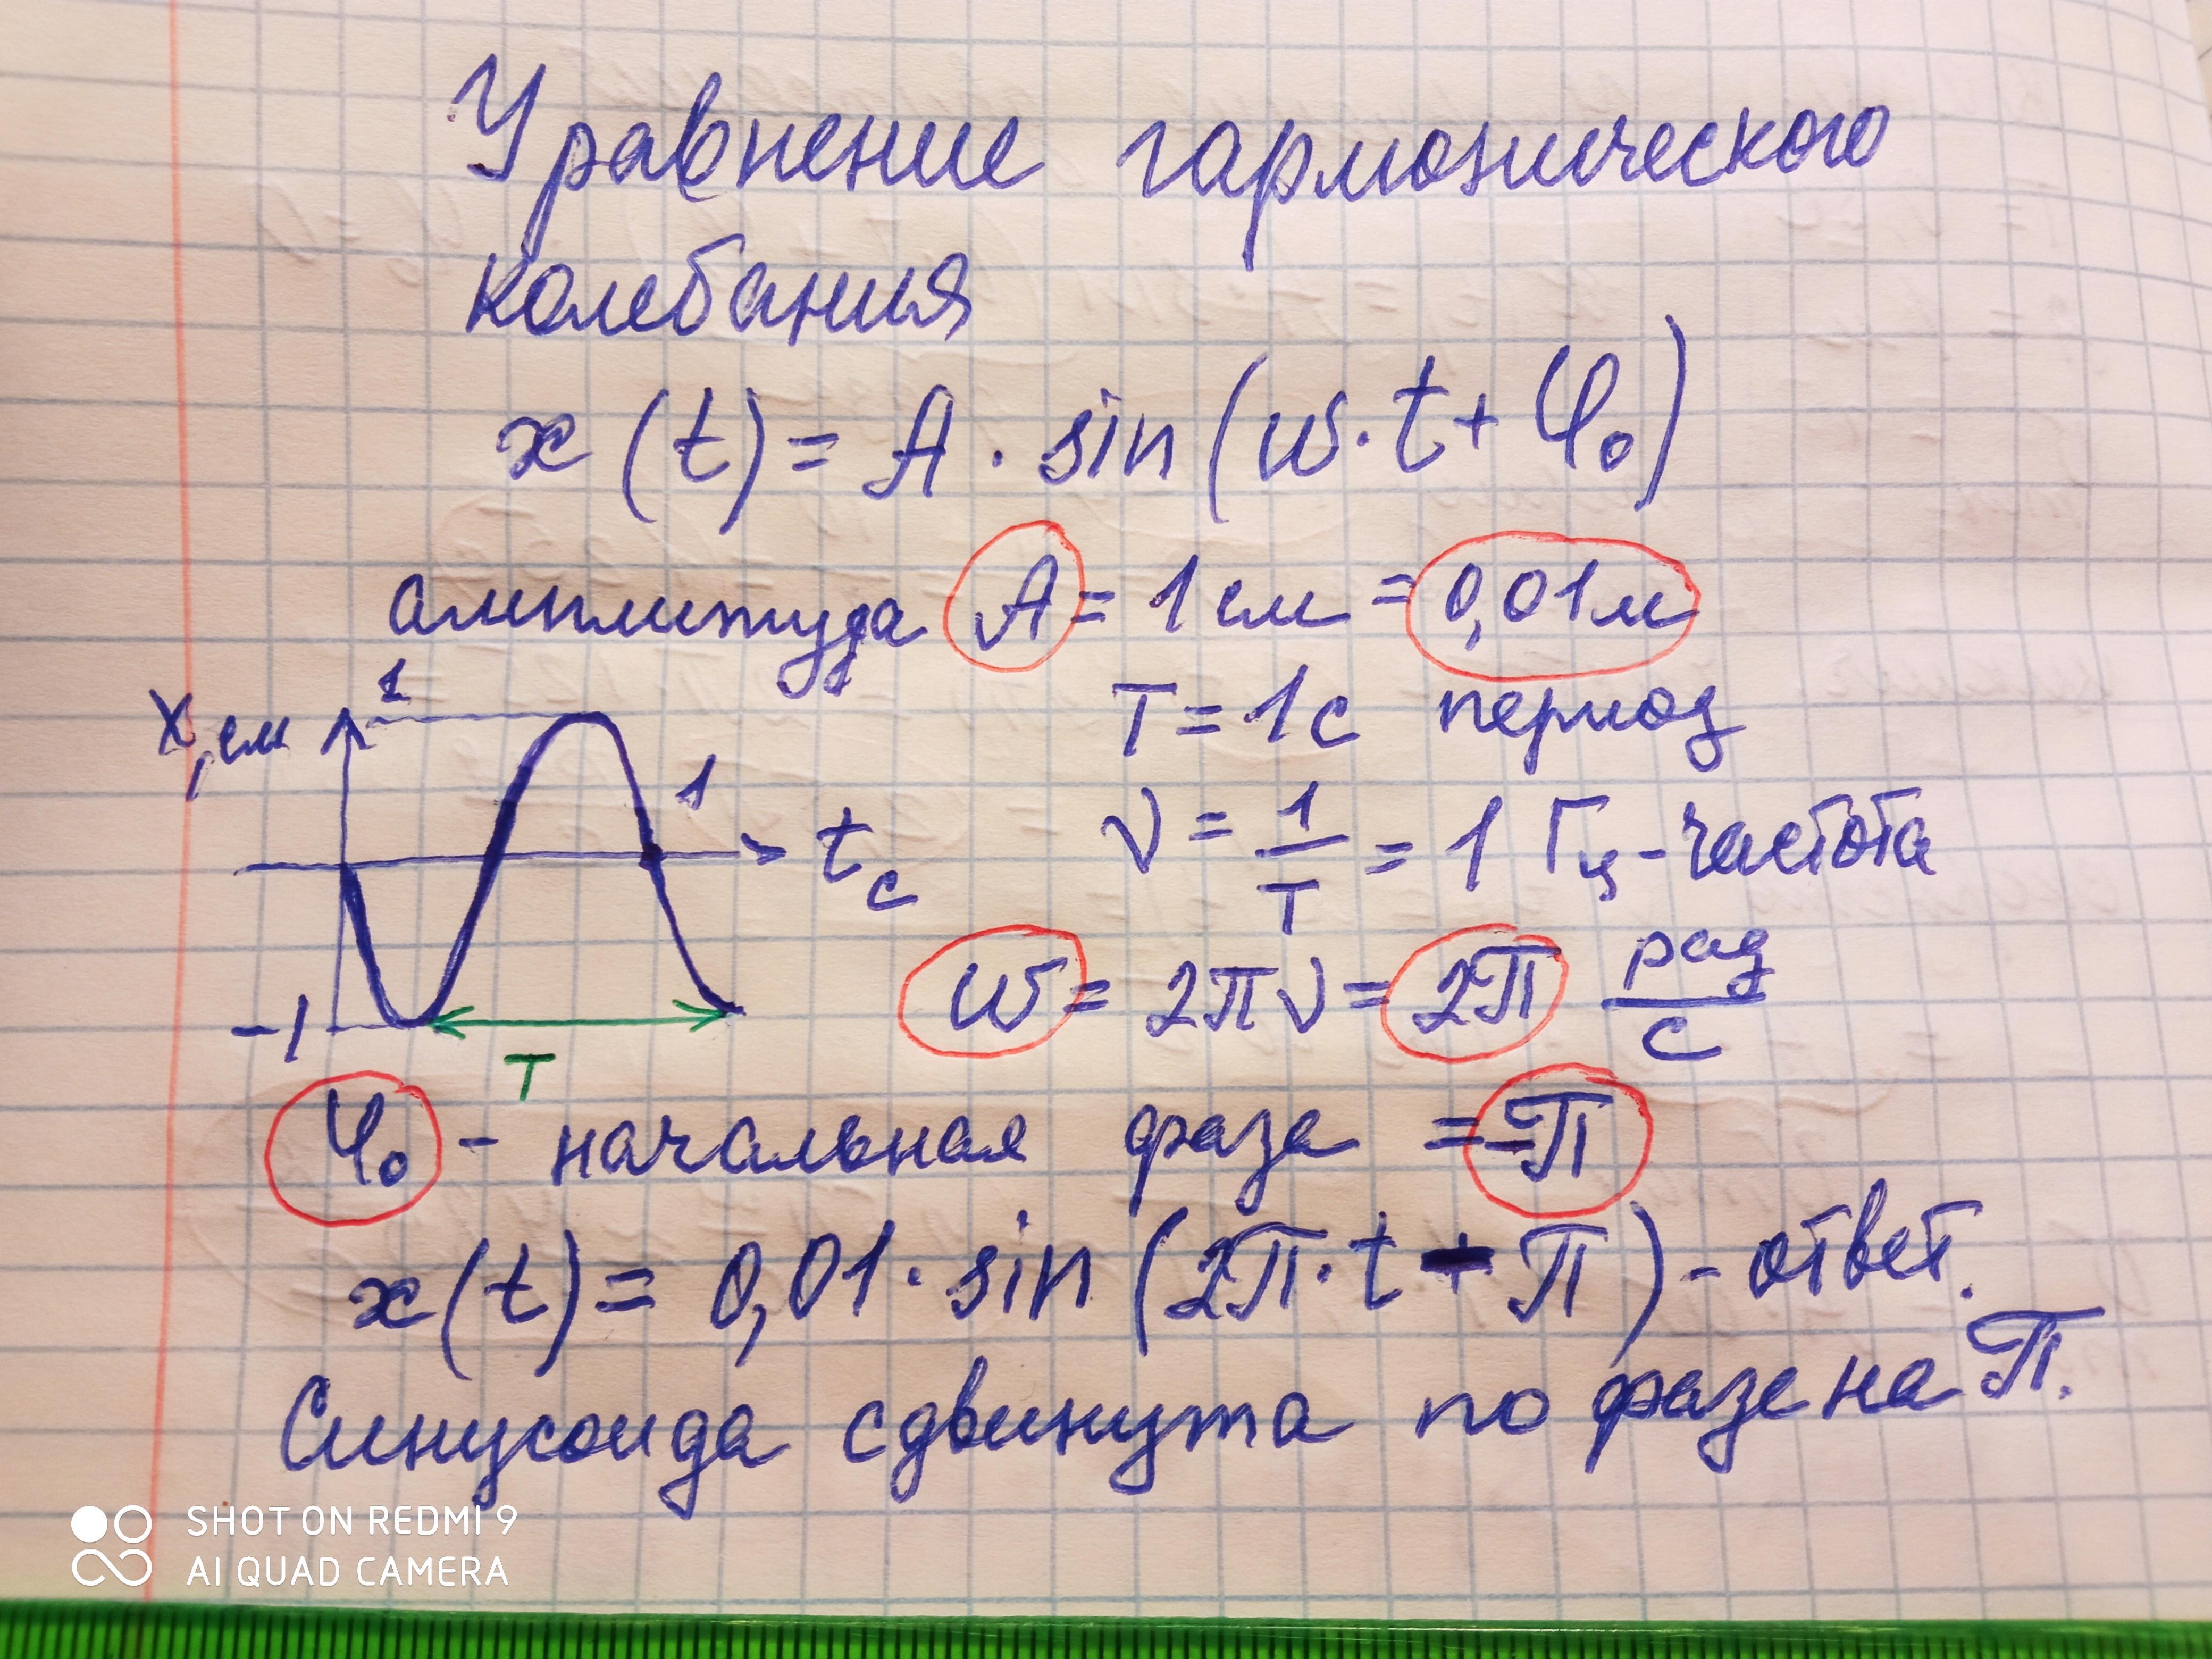 Уравнение гармонического
колебания
x(t) = A · sin(ω·t + φ₀)
амплитуда A = 1 см = 0,01м
x, см 1
T = 1с период
1
t с
ν = 1/T = 1 Гц - частота
ω = 2πν = 2π рад/с
-1
T
φ₀ - начальная фаза = -π
x(t) = 0,01 · sin(2π·t - π) - ответ.
Синусоида сдвинута по фазе на π.
SHOT ON REDMI 9
AI QUAD CAMERA